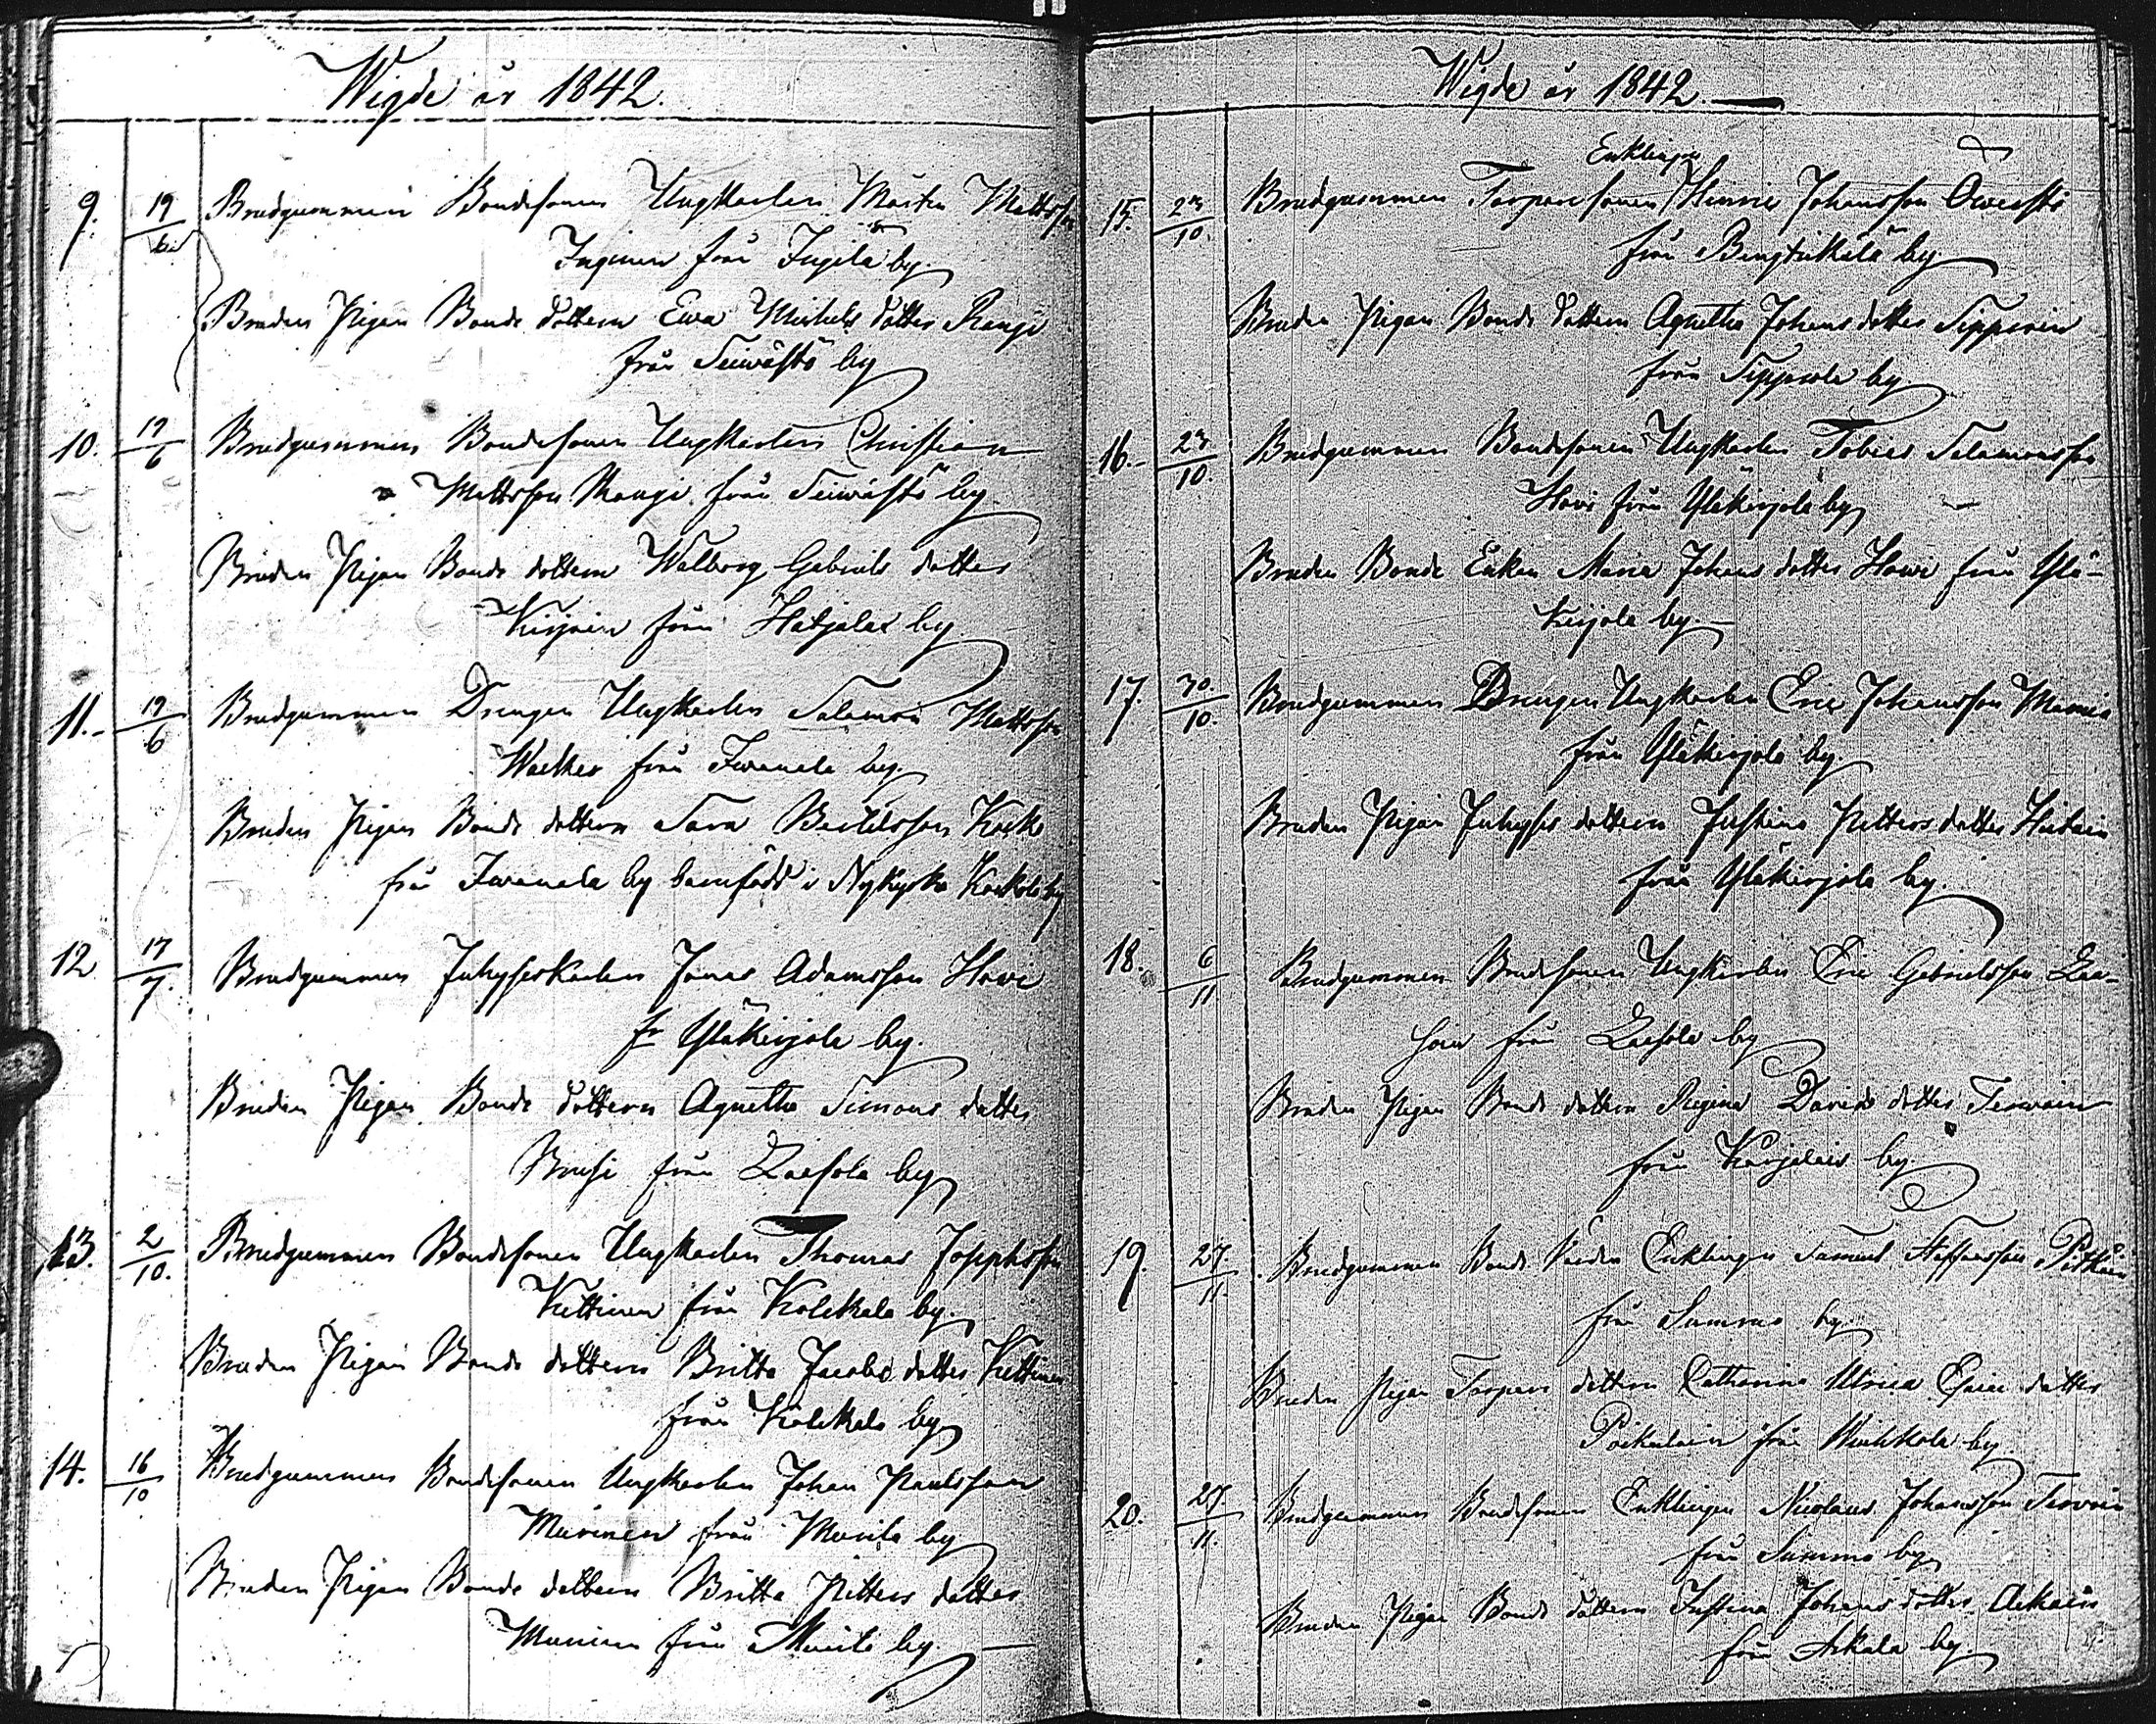 Wigde år 1842.
9. 19/6 Brudgummen Bondesonen Ungkarlen Mårten Mattsson
Inginen från Ingilä by.
Bruden Pigan Bonde dottern Ewa Michels dotter Kangi
från Seiwästö by
10. 19/6 Brudgummen Bondesonen Ungkarlen Christian
Mattsson Kangi från Seiwästö by
Bruden Pigan Bonde dottern Walborg Gabriels dotter
från Hatjalax by
11. 19/6 Brudgummen Drengen Ungkarlen Salamon Mattsson
från by.
Bruden Pigan Bonde dottern Sara Bertilsson Koski
från by barnfödd i Nykyrka by
12 17/7. Brudgummen Inhyseskarlen Jonas Adamsson Howi
fr Yläkirjola by.
Bruden Pigan Bonde dottern Agnetha Simons dotter
från by
13. 2/10. Brudgummen Bondesonen Ungkarlen Thomas Josephsson
Kettinen från Kolckala by.
Bruden Pigan Bonde dottern Britta Jacobs dotter Kettinen
från Kolckala by
14. 16/10 Brudgummen Bondesonen Ungkarlen Johan Paulsson
Murinen från Murila by
Bruden Pigan Bonde dottern Britta Petters dotter
Murinen från Murila by.
Wigde år 1842.
Enklingen
15. 23/10. Brudgummen Torparesonen Henric Johansson
från by
Bruden Pigan Bonde dottern Agnetha Johans dotter Sipponen
från Sippola by
16. 23/10. Brudgummen Bondesonen Ungkarlen Tobias Salamonsson
Howi från Yläkirjola by
Bruden Bonde Enkan Maria Johans dotter Howi från Ylä-
kirjola by.
17. 30./10. Brudgummen Drengen Ungkarlen Eric Johansson
från Yläkirjola by.
Bruden Pigan Inhyses dottern Justina Petters dotter
från Yläkirjola by.
18. 6/11 Brudgummen Bondesonen Ungkarlen Eric Gabrielsson
från by
Bruden Pigan Bonde dottern Regina Davids dotter Terwoin
från Karjalais by
19. 27./11. Brudgummen Bonde Enklingen Samuel Steffansson Pitkän
från Summa by
Bruden Pigan Torpare dottern Catharina Ulrica Esaie dotter
från by
20. 27/11. Brudgummen Bondesonen Enklingen Nicolaus Johansson Terwoin
från Summa by
Bruden Pigan Bonde dottern Justina Johans dotter
från by.